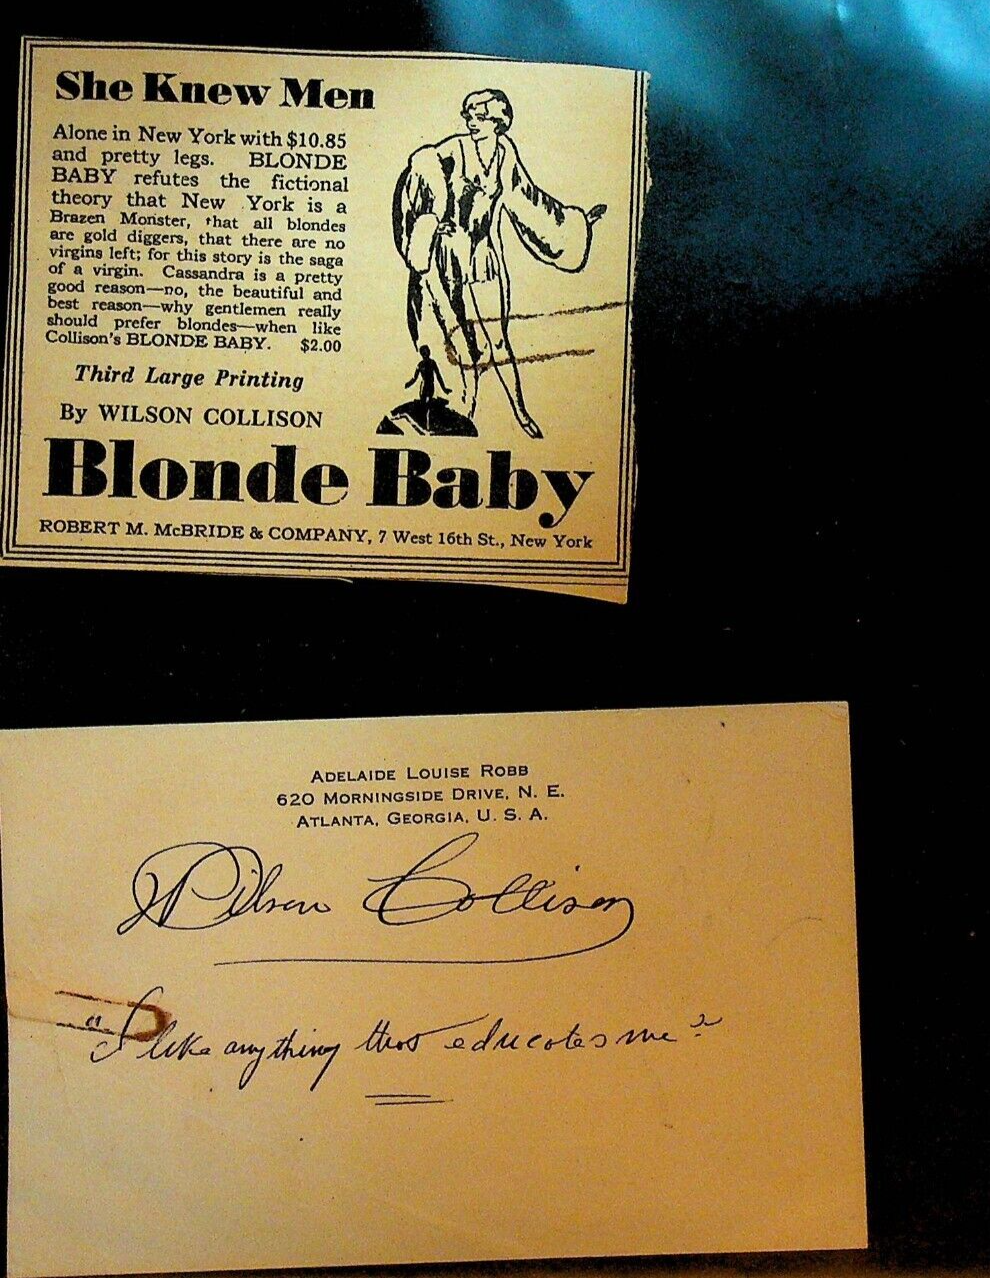 She Knew Men
Alone in New York with $10.85
and pretty legs. BLONDE
BABY refutes the fictional
theory that New York is a
Brazen Monster, that all blondes
are gold diggers, that there are no
virgins left; for this story is the saga
of a virgin. Cassandra is a pretty
good reason—no, the beautiful and
best reason—why gentlemen really
should prefer blondes—when like
Collison's BLONDE BABY. $2.00
Third Large Printing
By WILSON COLLISON
Blonde Baby
ROBERT M. McBRIDE & COMPANY, 7 West 16th St., New York
ADELAIDE LOUISE ROBB
620 MORNINGSIDE DRIVE, N. E.
ATLANTA, GEORGIA, U. S. A.
Wilson Collison
"I like anything that educates me"